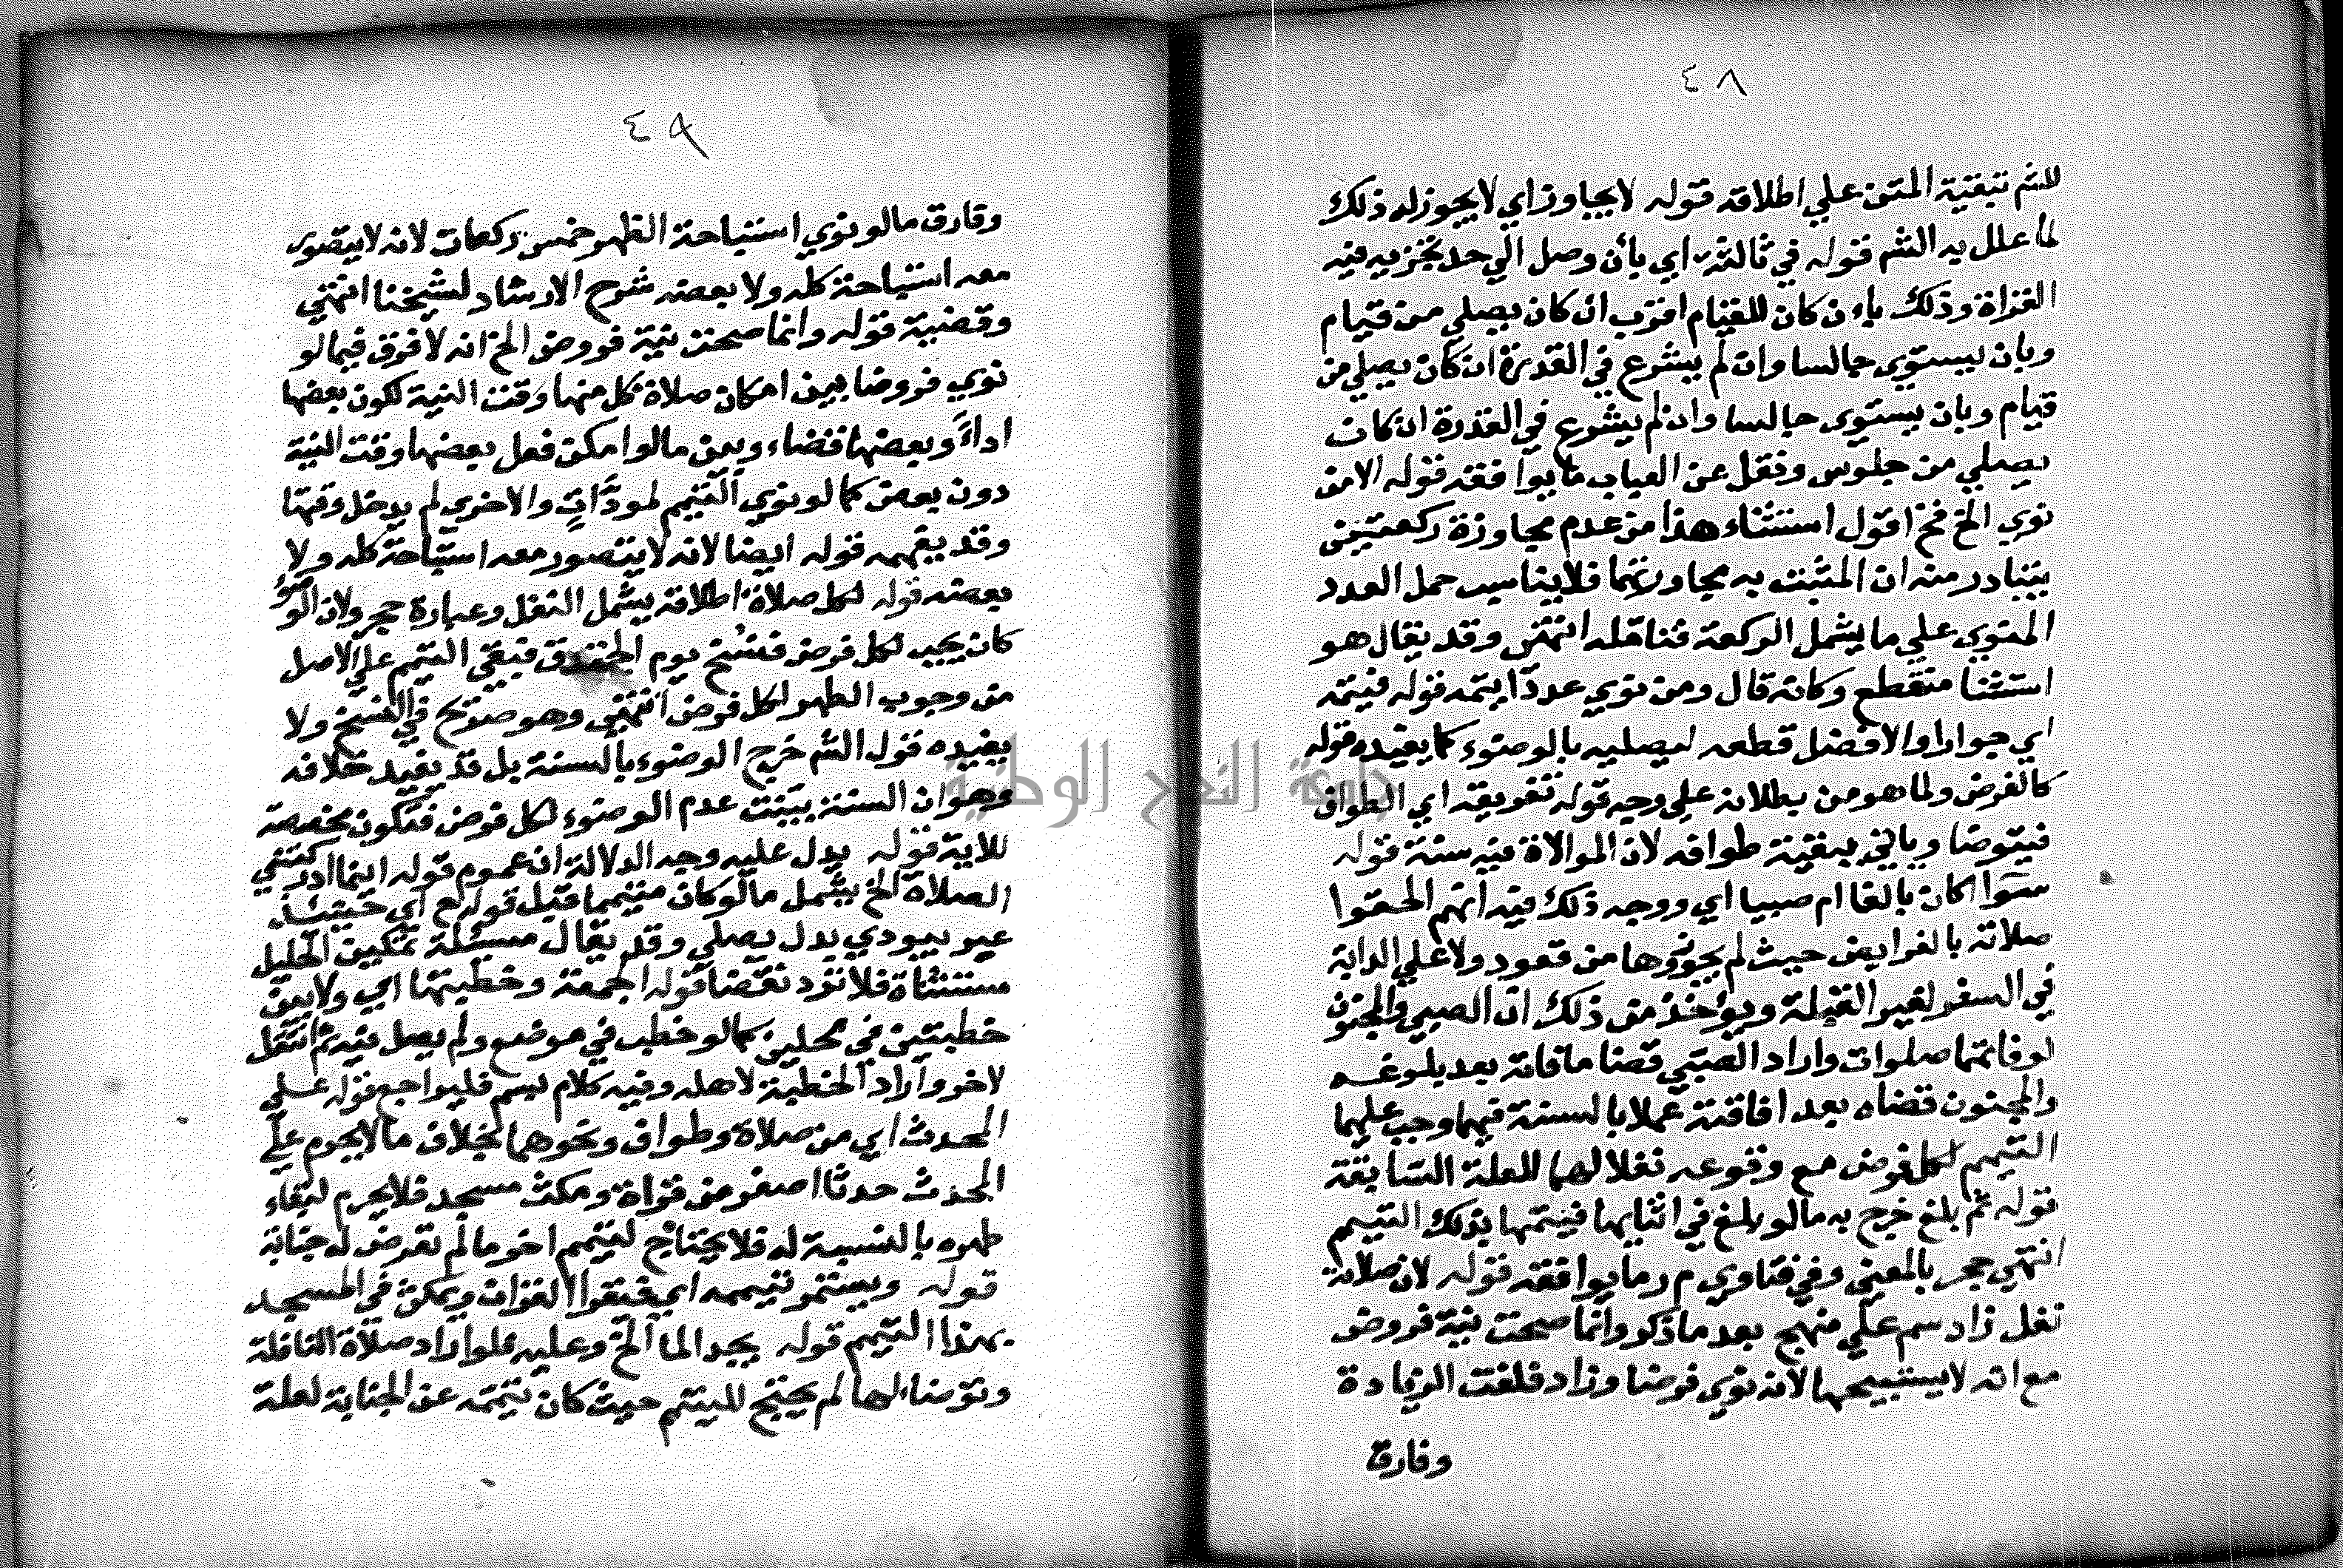 ٤٨
للشم تبقية المتن علي اطلاقه قوله لا يجاوز اي لا يجوز له ذلك
لما علل به الشم قوله في ثالثة اي بأن وصل الي حد تجزيه فيه
القراة وذلك بأن كان للقيام اقرب ان كان يصلي من قيام
وبان يستوي جالسا وان لم يشرع في القدرة ان كان يصلي من
قيام وبان يستوي جالسا وان لم يشرع في القدرة ان كان
يصلي من جلوس ونقل عن العباب ما يوافقه قوله الا من
نوي الخ اقول استثناء هذا من عدم مجاوزة ركعتين
يتبادر منه ان المثبت به مجاوزتهما فلا يناسب حمل العدد
المنوي علي ما يشمل الركعة فتامله انتهى وقد يقال هو
استثنا منقطع وكانه قال ومن نوي عددا يتمه قوله فيتمه
اي جوازا والافضل قطعه ليصليه بالوضوء كما يفيده قوله
كالفرض ولما هو من بطلانه علي وجه قوله تفريقه اي الطواف
فيتوضا وياتي ببقية طوافه لان الموالاة فيه سنة قوله
سوا اكان بالغا ام صبيا اي ووجه ذلك فيه انهم الحقوا
صلاته بالفرايض حيث لم يجوزوها من قعود ولا علي الدابة
في السفر لغير القبلة ويؤخذ من ذلك ان الصبي والمجنون
لو فاتتهما صلوات واراد الصبي قضا ما فاته بعد بلوغه
والمجنون قضاه بعد افاقته عملا بالسنة فيهما وجب عليهما
التيمم لكل فرض مع وقوعه نفلا لهما للعلة السابقة
قوله ثم بلغ خرج به ما لو بلغ في اثنايها فيتمها بذلك التيمم
انتهي حجر بالمعني وفي فتاوي م ر ما يوافقه قوله لان صلاته
نفل زاد سم علي منهج بعد ما ذكر وانما صحت نية فروض
مع انه لا يستبيحها لانه نوي فرضا وزاد فلغت الزيادة
وفارق
٤٩
وفارق ما لو نوي استباحة الظهر خمس ركعات لانه لا يتصور
معه استباحة كله ولا بعضه شرح الارشاد لشيخنا انتهي
وقضية قوله وانما صحت نية فروض الخ انه لا فرق فيما لو
نوي فروضا بين امكان صلاة كل منها وقت النية لكون بعضها
اداءً وبعضها قضاء وبين ما لو امكن فعل بعضها وقت النية
دون بعض كما لو نوي التيمم لمؤداتٍ والاخري لم يدخل وقتها
وقد يفهمه قوله ايضا لانه لا يتصور معه استباحة كله ولا
بعضه قوله لكل صلاة اطلاقه يشمل النفل وعبارة حجر ولان الوضوء
كان يجب لكل فرض فنسخ يوم الخندق فبقي التيمم علي الاصل
من وجوب الطهر لكل فرض انتهي وهو صريح في النسخ ولا
يفيده قول الشم خرج الوضوء بالسنة بل قد يفيد خلافه
وهو ان السنة بينت عدم الوضوء لكل فرض فتكون مخصصة
للاية قوله يدل عليه وجه الدلالة ان عموم قوله اينما ادركتني
الصلاة الخ يشمل ما لو كان متيمما قبل قوله اي حينئذ
عبر بيودي بدل يصلي وقد يقال مسئلة تمكين الحليل
مستثناة فلا ترد نقضا قوله الجمعة وخطبتها اي ولا بين
خطبتين في محلين كما لو خطب في موضع ولم يصل فيه ثم انتقل
لاخر واراد الخطبة لاهله وفيه كلام لسم فليراجع قوله علي
المحدث اي من صلاة وطواف ونحوهما بخلاف ما لا يحرم علي
المحدث حدثا اصغر من قراة ومكث مسجد فلا يحرم لبقاء
طهره بالنسبة له فلا يحتاج لتيمم اخر ما لم تعرض له جنابة
قوله ويستمر تيممه اي فتقرا القران ويمكث في المسجد
بهذا التيمم قوله يجد الما الخ وعليه فلو اراد صلاة النافلة
وتوضا لها لم يحتج للتيمم حيث كان تيممه عن الجنابة لعلة
جامعة النجاح الوطنية